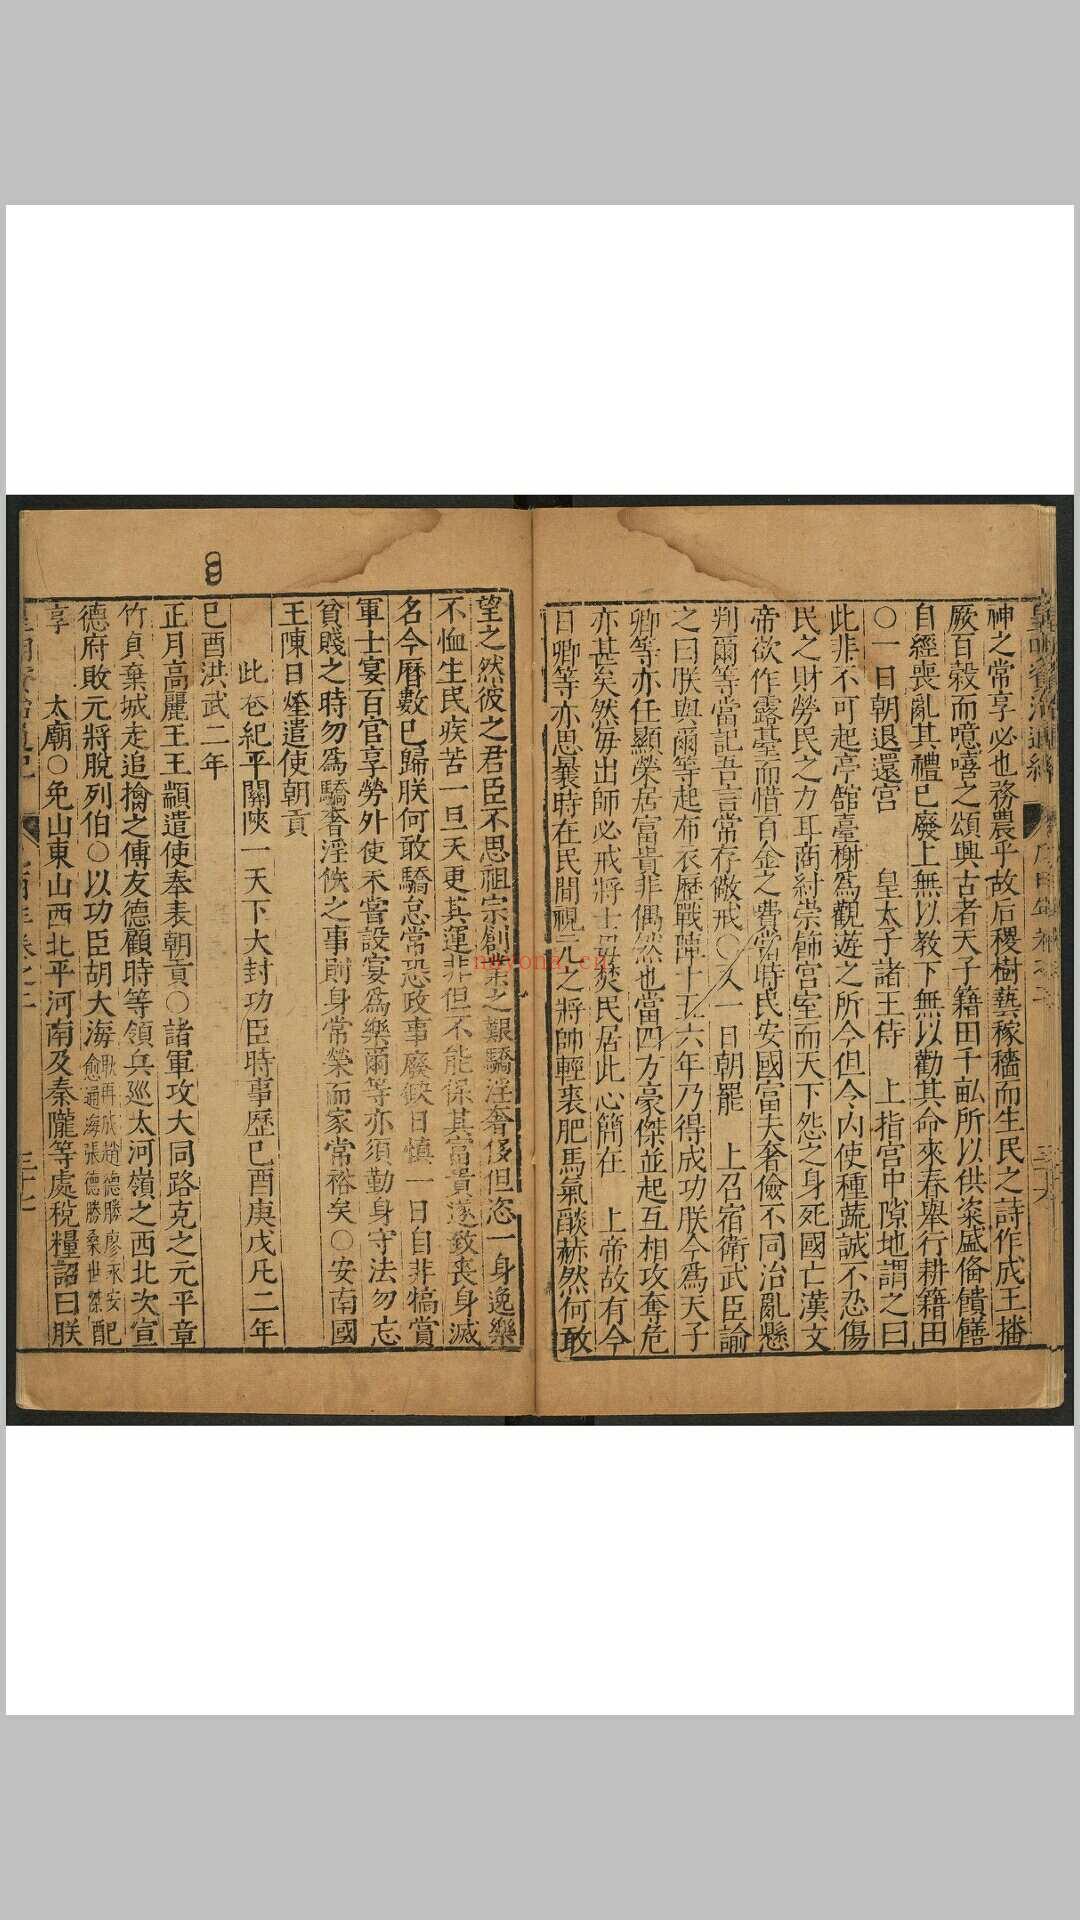 神之常享必也務農乎故后稷樹藝稼穡而生民之詩作成王播
厥百穀而噫嘻之頌興古者天子籍田千畝所以供粢盛俻饋饍
自經喪亂其禮已廢上無以教下無以勸其命來春舉行耕籍田
〇一日朝退還宮 皇太子諸王侍 上指宮中隙地謂之曰
此非不可起亭舘臺榭爲觀遊之所今但令內使種蔬誠不忍傷
民之財勞民之力耳商紂崇飾宮室而天下怨之身死國亡漢文
帝欲作露臺而惜百金之費當時民安國富夫奢儉不同治亂懸
判爾等當記吾言常存儆戒〇又一日朝罷 上召宿衛武臣諭
之曰朕與爾等起布衣歷戰陣十五六年乃得成功朕今爲天子
卿等亦任顯榮居富貴非偶然也當四方豪傑並起互相攻奪危
亦甚矣然毎出師必戒將士毋焚民居此心簡在 上帝故有今
日卿等亦思曩時在民間視元之將帥輕裘肥馬氣燄赫然何敢
望之然彼之君臣不思祖宗創業之艱驕淫奢侈但恣一身逸樂
不恤生民疾苦一旦天更其運非但不能保其富貴遂致喪身滅
名今曆數已歸朕何敢驕怠常恐政事廢缺日慎一日自非犒賞
軍士宴百官享勞外使未嘗設宴爲樂爾等亦須勤身守法勿忘
貧賤之時勿爲驕奢淫佚之事則身常榮而家常裕矣〇安南國
王陳日煃遣使朝貢
此卷紀平關陝一天下大封功臣時事歷己酉庚戌凡二年
己酉洪武二年
正月高麗王王顓遣使奉表朝貢〇諸軍攻大同路克之元平章
竹貞棄城走追擒之傅友德顧時等領兵巡太河嶺之西北次宣
德府敗元將脫列伯〇以功臣胡大海耿再成趙德勝廖永安俞通海張德勝桑世傑配
享 太廟〇免山東山西北平河南及秦隴等處稅糧詔曰朕
8
nayona.cn